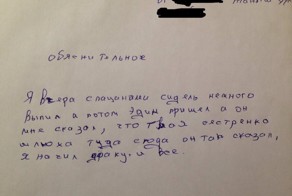 обяснительное
Я вчера спацанами сидель немного
выпил а потом Эдик пришел а он
мне сказал, что твая сястренка
шлюха туда сюда он так сказал,
я начил драку. и все.